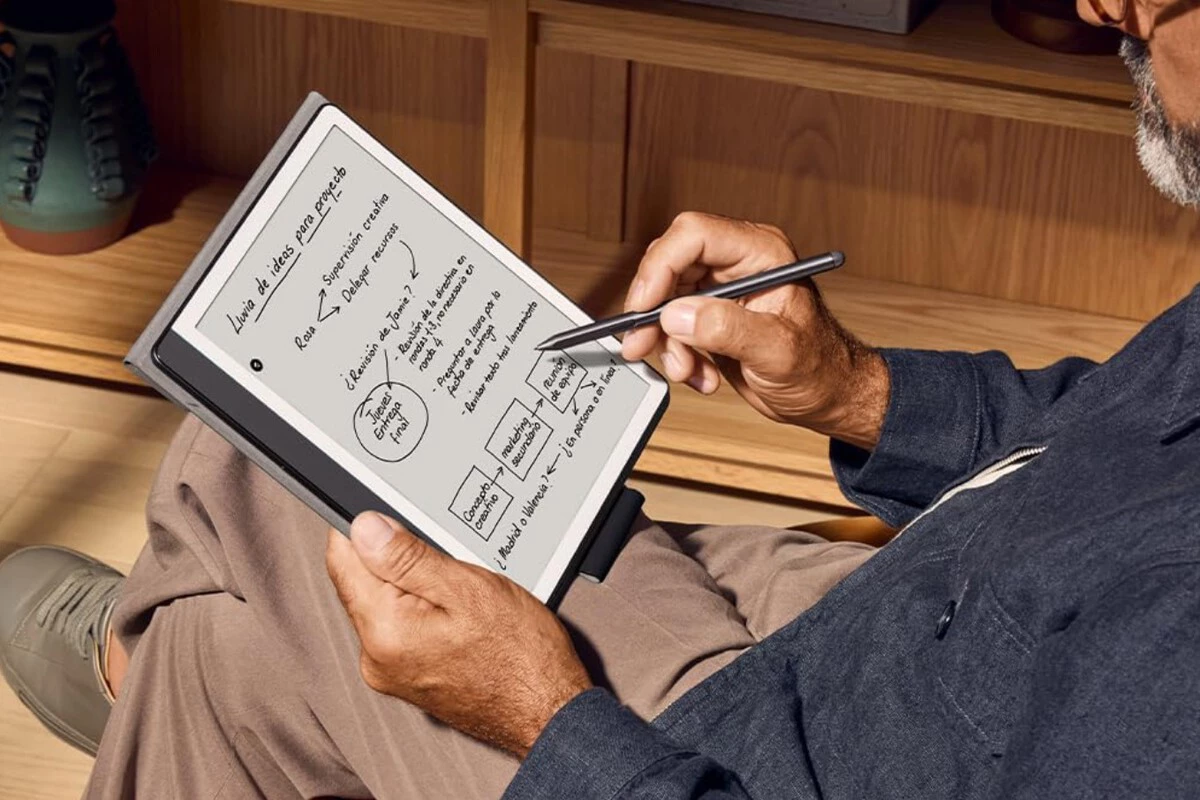 Lluvia de ideas para proyecto
Rosa
Supervisión creativa
Delegar recursos
¿Revisión de Jamie?
- Revisión de la directiva en
rondas 1+3, no necesario en
ronda 4
- Preguntar a Laura por la
fecha de entrega
- Revisar texto tras lanzamiento
Jueves
Entrega
final
Concepto
creativo
marketing
secundario
reunión
de equipo
¿En persona o en línea?
¿Madrid o Valencia?